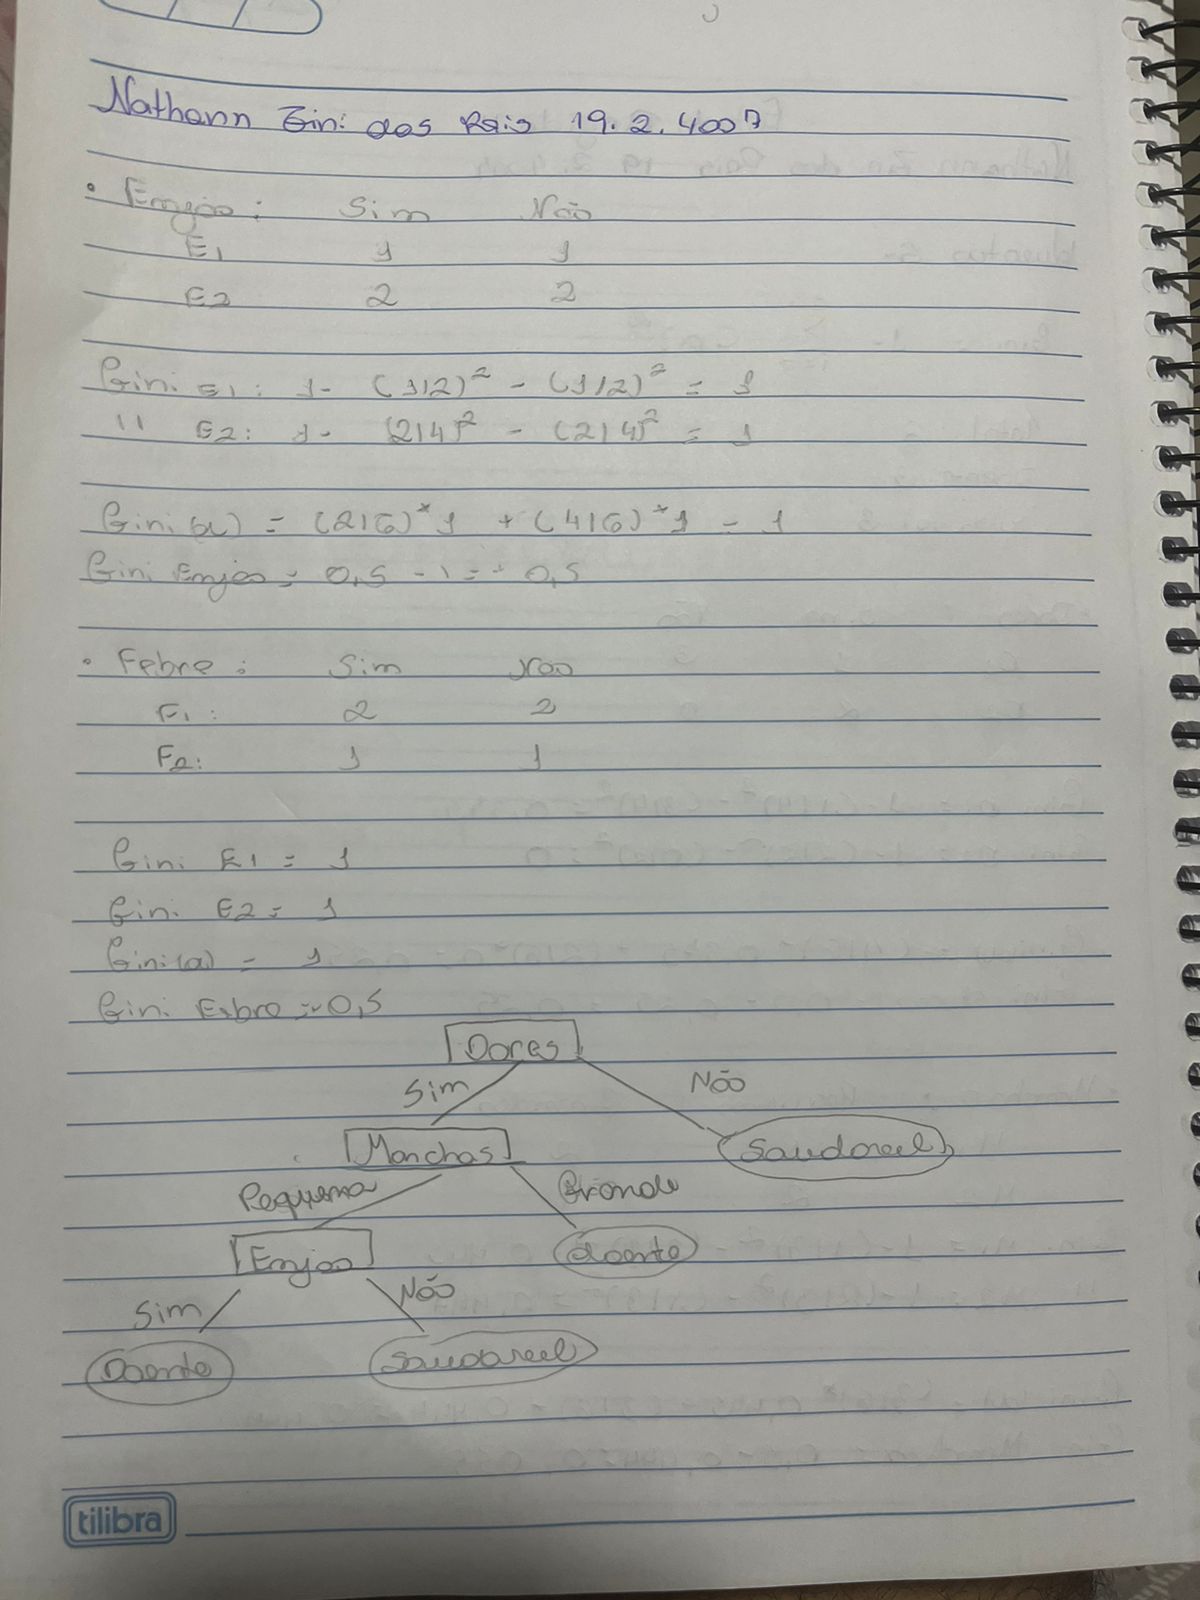 Nathann Zini dos Reis 19.2.4007
• Enjoo: Sim Não
E1 1 1
E2 2 2
Gini E1: 1- (1/2)² - (1/2)² = 1
" E2: 1- (2/4)² - (2/4)² = 1
Gini(x) = (2/6)*1 + (4/6)*1 = 1
Gini Enjoo = 0,5 - 1 = - 0,5
• Febre: Sim Não
F1: 2 2
F2: 1 1
Gini E1 = 1
Gini E2 = 1
Gini(a) = 1
Gini Febre = -0,5
Dores
Sim Não
Manchas Saudavel
Pequena Grande
Enjoo doente
Sim Não
Doente Saudavel
tilibra